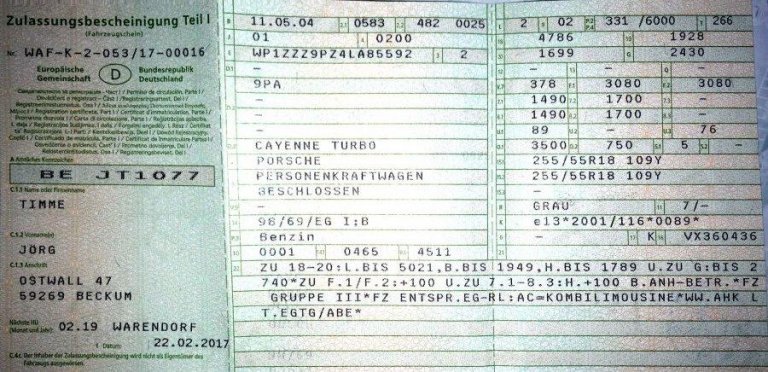 Zulassungsbescheinigung Teil I
(Fahrzeugschein)
Nr. WAF-K-2-053/17-00016
Europäische Gemeinschaft D Bundesrepublik Deutschland
A Amtliches Kennzeichen
BE JT1077
C.1.1 Name oder Firmenname
TIMME
C.1.2 Vorname(n)
JÖRG
C.1.3 Anschrift
OSTWALL 47
59269 BECKUM
Nächste HU
(Monat und Jahr) 02.19 WARENDORF
Datum: 22.02.2017
C.4c Der Inhaber der Zulassungsbescheinigung wird nicht als Eigentümer des
Fahrzeugs ausgewiesen.
B 11.05.04 2.1 0583 2.2 482 0025
J 01 4 0200
E WP1ZZZ9PZ4LA85592 3 2
–
9PA
–
–
CAYENNE TURBO
PORSCHE
PERSONENKRAFTWAGEN
GESCHLOSSEN
–
98/69/EG I;B
Benzin
0001 0465 4511
L 2 9 02 P.2 P.4 331 /6000 T 266
4786 1928
1699 G 2430
– –
378 3080 3080
1490 1700 –
1490 1700 –
89 – 76
3500 750 5 –
255/55R18 109Y
255/55R18 109Y
–
GRAU 7/–
K e13*2001/116*0089*
– K VX360436
ZU 18-20:L.BIS 5021,B.BIS 1949,H.BIS 1789 U.ZU G:BIS 2
740*ZU F.1/F.2:+100 U.ZU 7.1-8.3:H.+100 B.ANH-BETR.*FZ
GRUPPE III*FZ ENTSPR.EG-RL:AC=KOMBILIMOUSINE*WW.AHK L
T.EGTG/ABE*